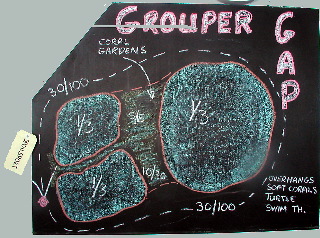 GROUPER
GAP
CORAL
GARDENS
30/100
1/3
1/3
1/3
10/30
30/100
OVERHANGS
SOFT CORALS
TURTLE
SWIM TH.